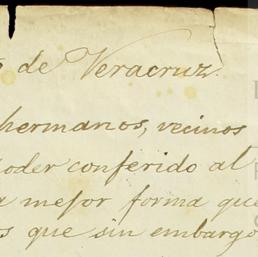 de Veracruz.
hermanos, vecinos
poder conferido al
mejor forma que
que sin embargo